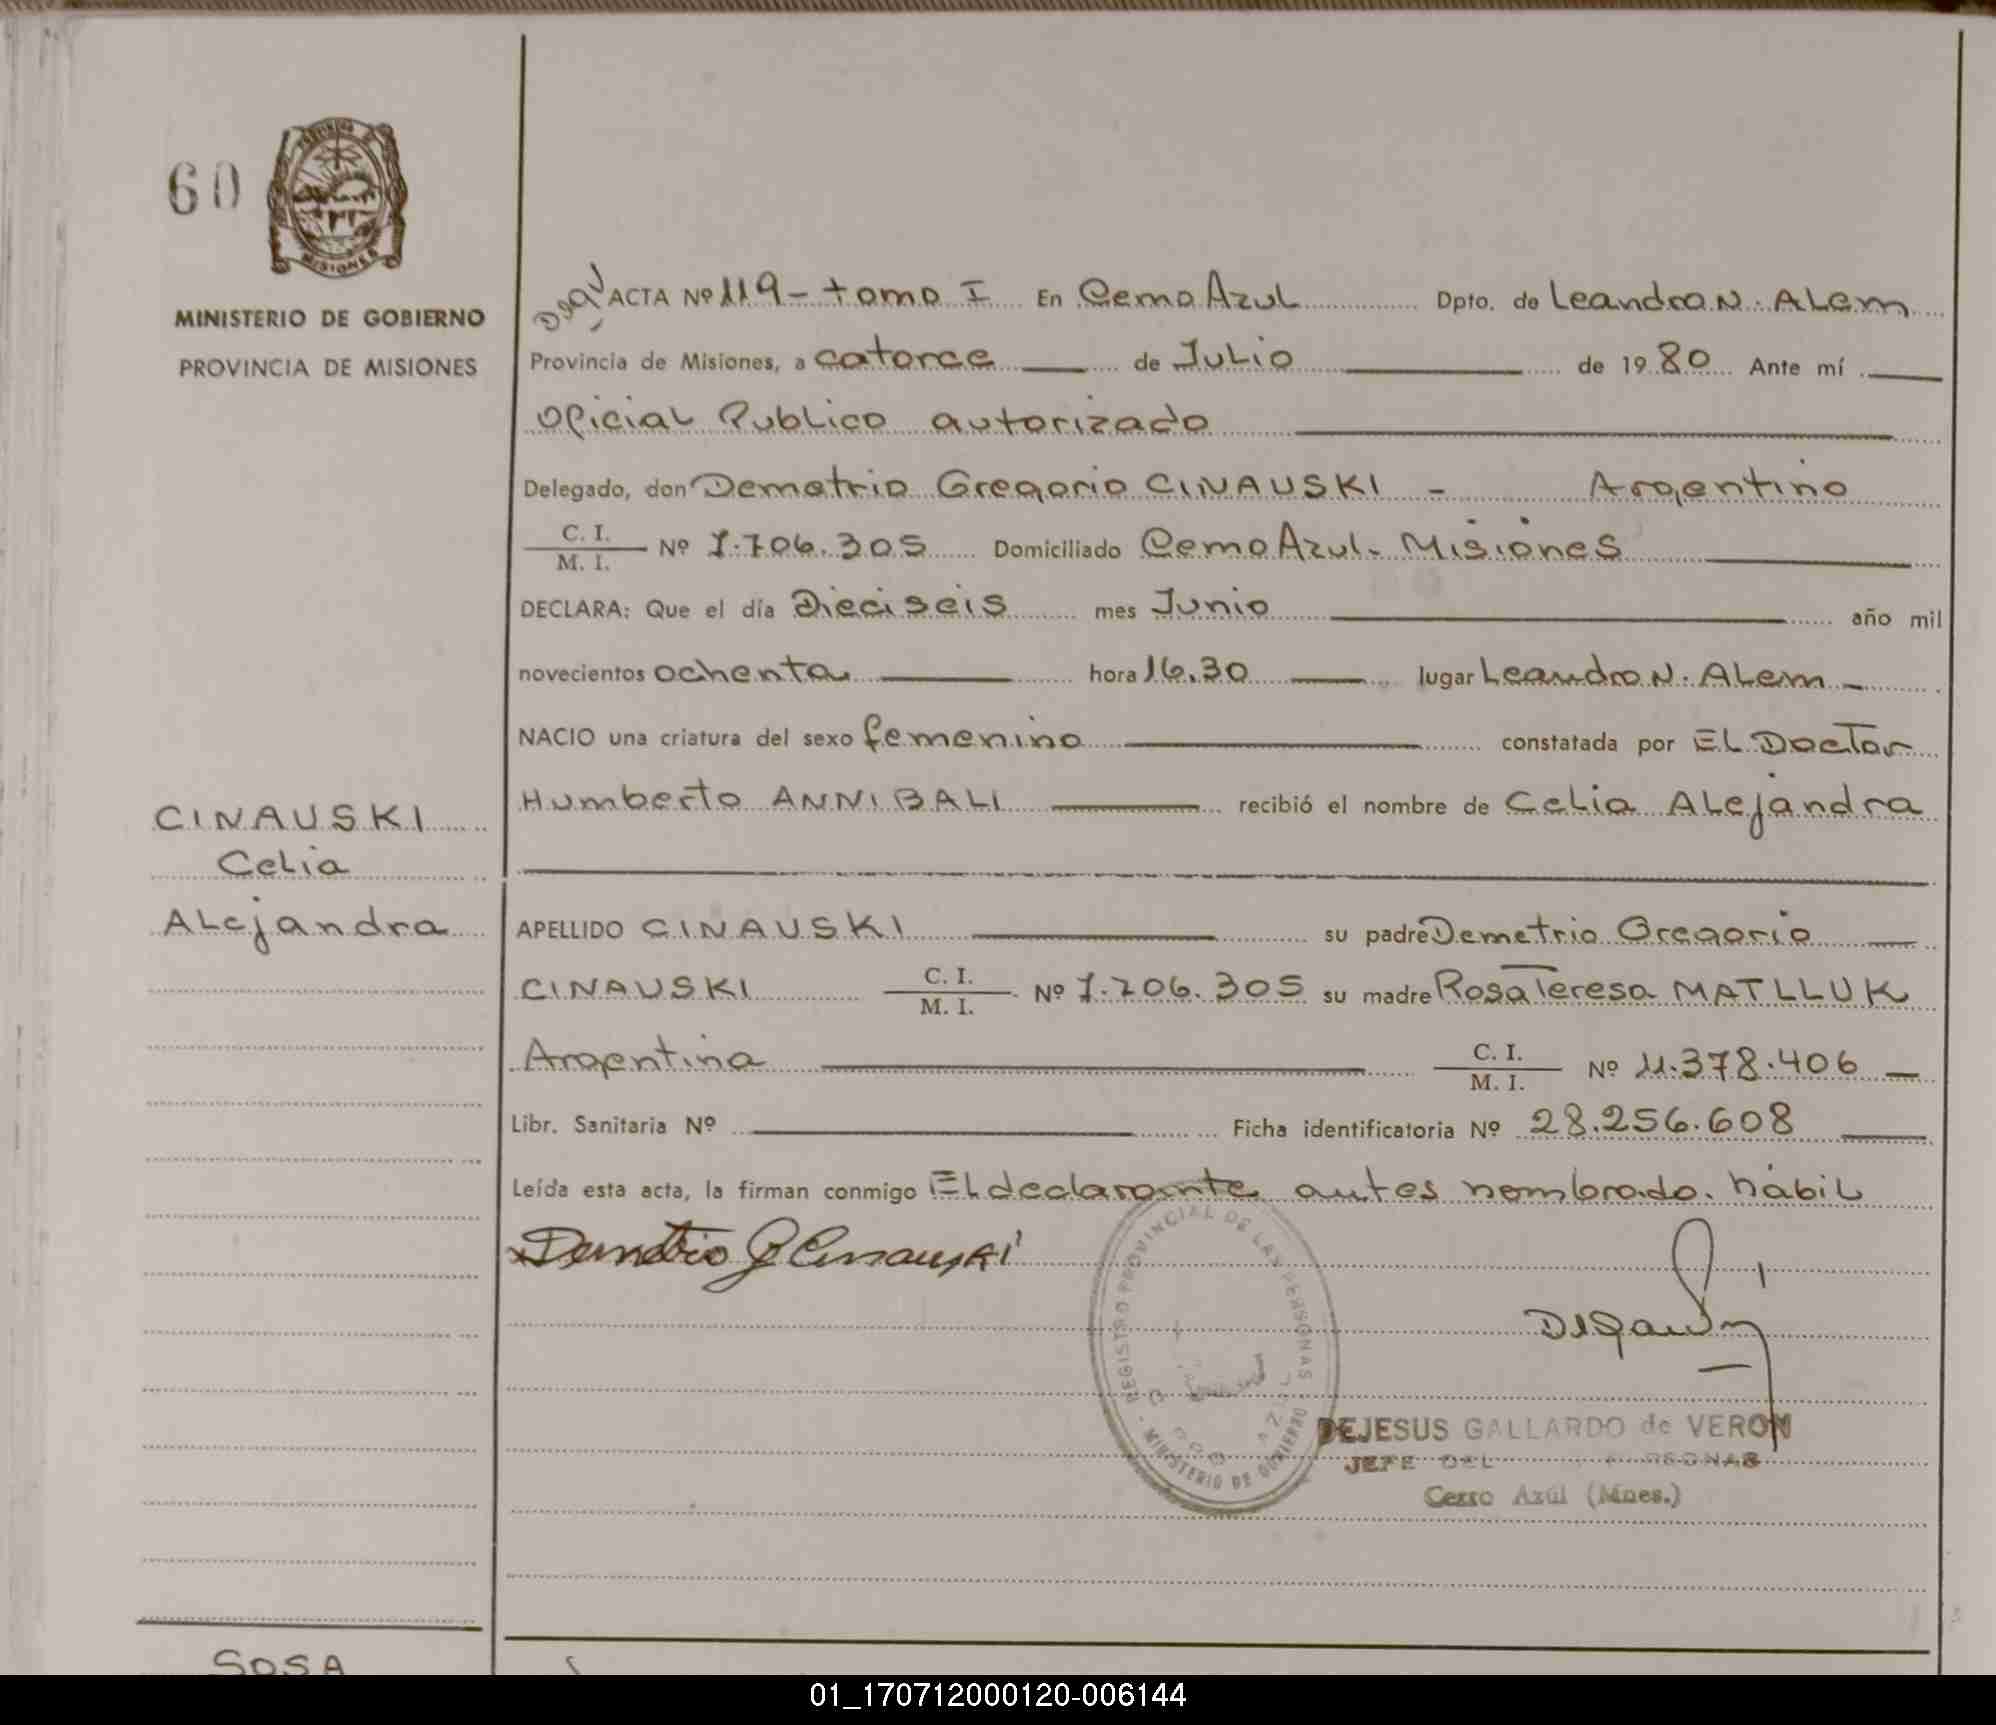 60
MISIONES
MINISTERIO DE GOBIERNO
PROVINCIA DE MISIONES
CINAUSKI
Celia
ALejandra
ACTA Nº 119 - tomo I En Cerro Azul Dpto. de Leandro N. ALem
Provincia de Misiones, a catorce de JuLio de 1980 Ante mí
Oficial Publico autorizado
Delegado, don Demetrio Gregorio CINAUSKI - Argentino
C. I. / M. I. Nº 7.706.305 Domiciliado Cerro Azul - Misiones
DECLARA: Que el día Dieciseis mes Junio año mil
novecientos ochenta hora 16,30 lugar Leandro N. ALem
NACIO una criatura del sexo femenino constatada por EL Doctor
Humberto ANNIBALI recibió el nombre de Celia ALejandra
APELLIDO CINAUSKI su padre Demetrio Gregorio
CINAUSKI C. I. / M. I. Nº 7.706.305 su madre Rosa Teresa MATLLUK
Argentina C. I. / M. I. Nº 11.378.406
Libr. Sanitaria Nº Ficha identificatoria Nº 28.256.608
Leída esta acta, la firman conmigo EL declarante antes nombrado. hábil
Demetrio G Cinauski
REGISTRO PROVINCIAL DE LAS PERSONAS
MINISTERIO DE GOBIERNO
DEJESUS GALLARDO de VERON
JEFE DEL PERSONAS
Cerro Azúl (Mnes.)
SOSA
01_170712000120-006144